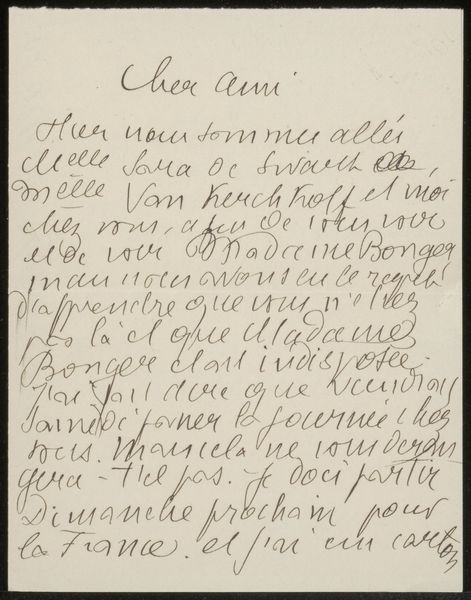 Cher ami
Hier nous sommes allés
Melle Sara de Swart
Melle Van Kerckhoff et moi
chez vous, afin de vous voir
et de voir Madame Bonger
mais nous avons eu le regret
d'apprendre que vous n'etiez
pas là et que Madame
Bonger etait indisposée.
J'ai fait dire que viendrai
Samedi passer la journée chez
vous. Mais cela ne vous deran
gera-t'il pas. je dois partir
Dimanche prochain pour
la France. et j'ai un carton